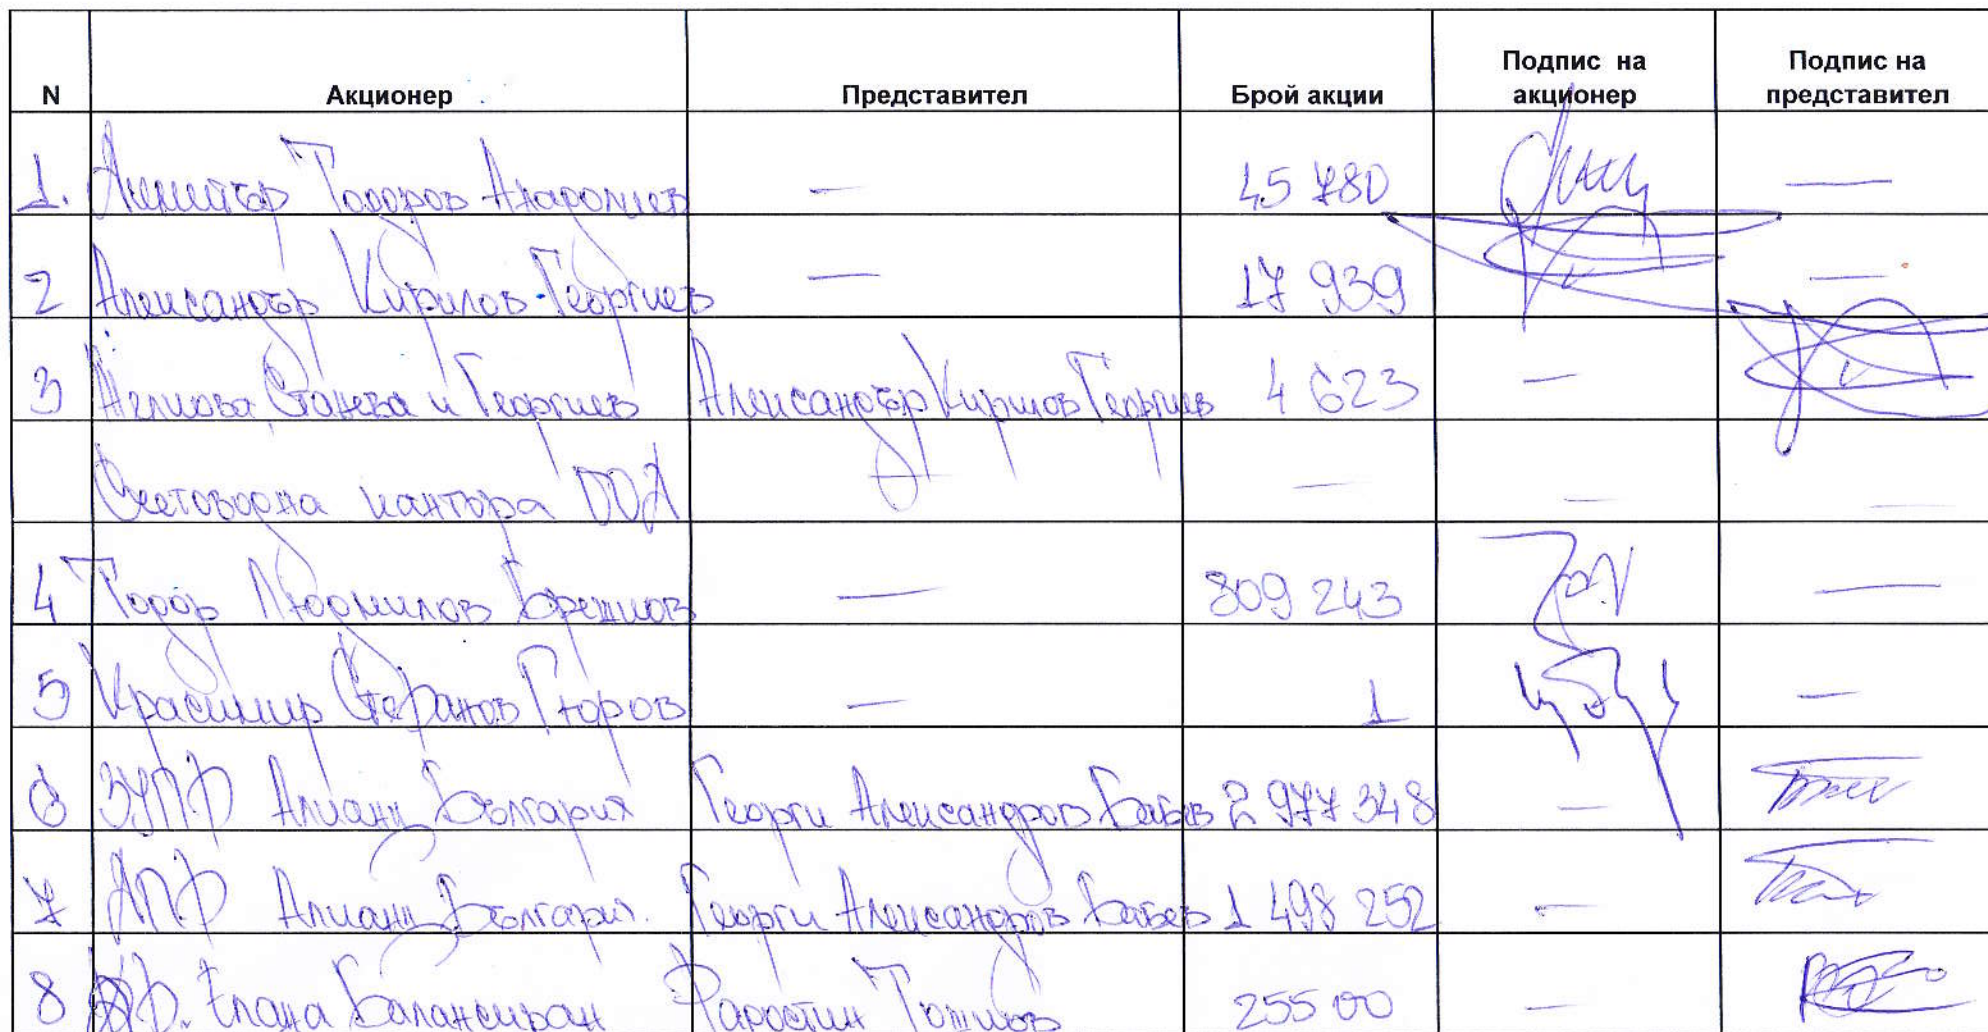 N Акционер Представител Брой акции Подпис на акционер Подпис на представител
1. Димитър Тодоров — 45 780 —
2 Александър Кирилов Георгиев — 17 939 —
3 Станева и Георгиев Александър Кирилов Георгиев 4 623 —
Счетоводна кантора ООД — — —
4 Тодор Людмилов Брешков — 809 243 —
5 Красимир Стефанов Гюров — 1 —
6 ЗУПФ Алианц България Георги Александров Бабев 2 977 348 —
7 ДПФ Алианц България. Георги Александров Бабев 1 498 252 —
8 Елана Балансиран 255 00 —